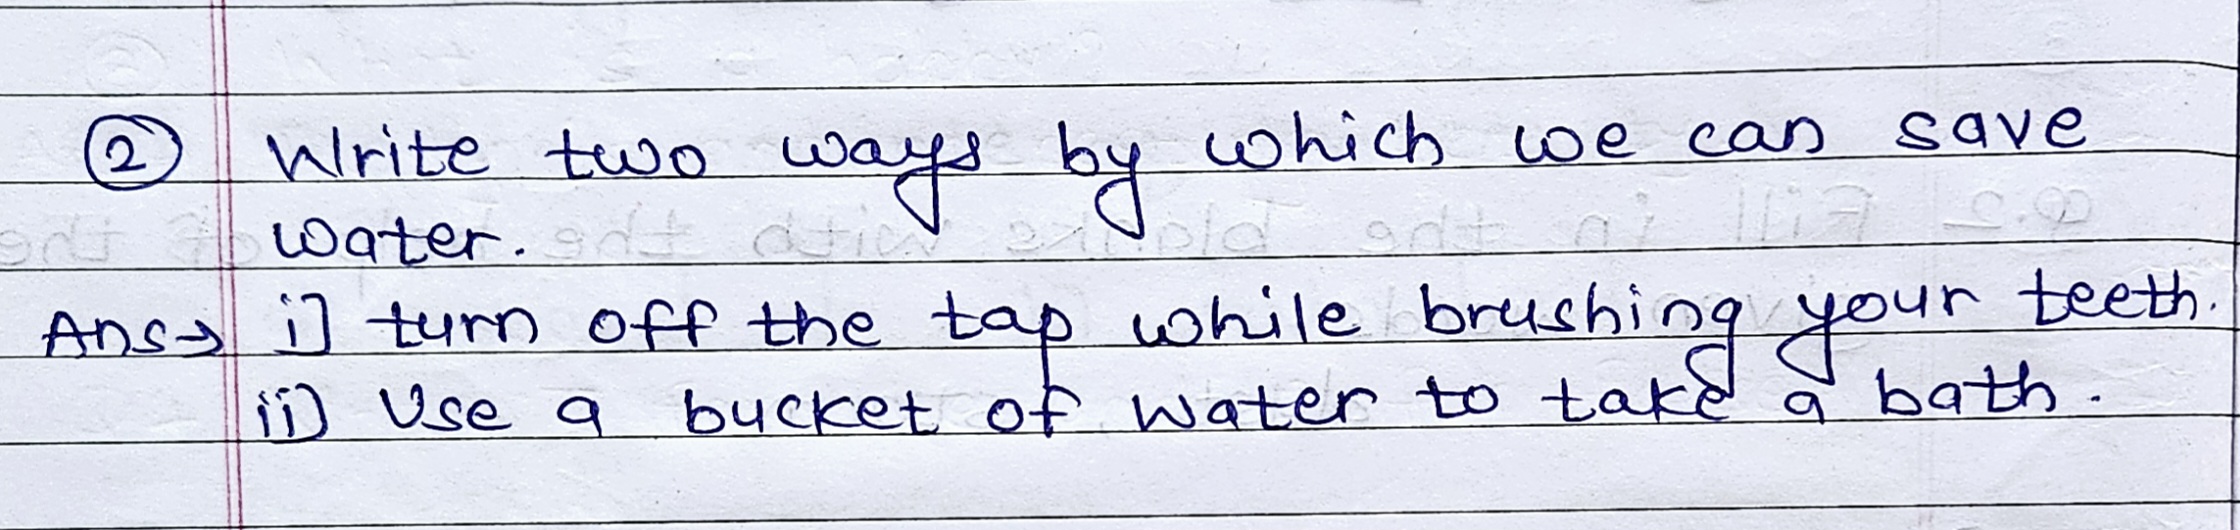 ② Write two ways by which we can save
water.
Ans→ i] turn off the tap while brushing your teeth.
ii) Use a bucket of water to take a bath.